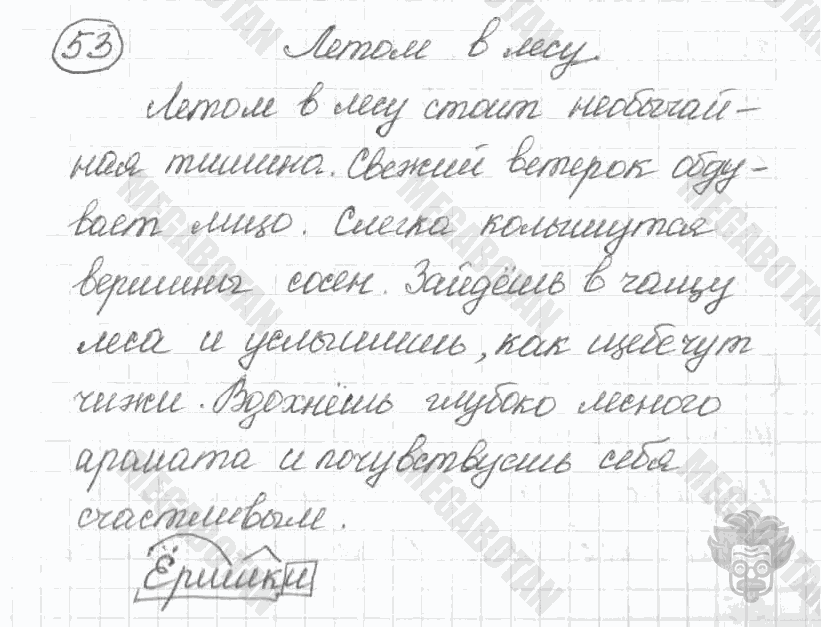 53 Летом в лесу.
Летом в лесу стоит необычай-
ная тишина. Свежий ветерок обду-
вает лицо. Слегка колышутся
вершины сосен. Зайдёшь в чащу
леса и услышишь, как щебечут
чижи. Вдохнёшь глубоко лесного
аромата и почувствуешь себя
счастливым.
Ёршики
MEGABOTAN